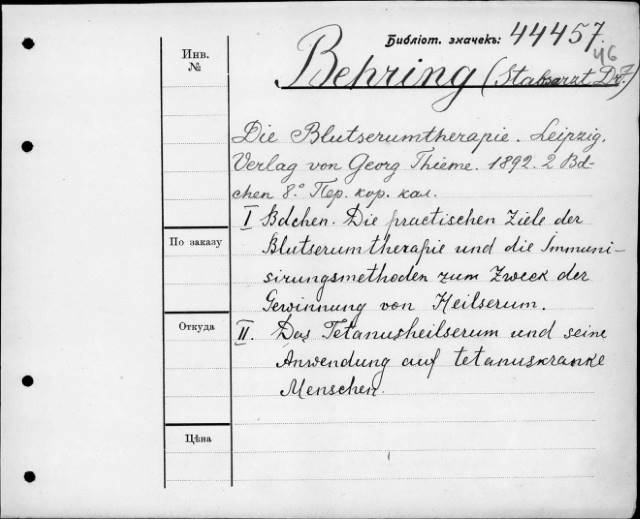 Библіот. значекъ: 44457.
46
Инв.
№
Behring (Stabsarzt Dr.)
Die Blutserumtherapie. Leipzig.
Verlag von Georg Thieme. 1892. 2 Bd-
chen 8.° Пер. кор. кал.
I Bdchen. Die practischen Ziele der
По заказу
Blutserumtherapie und die Immuni-
sirungsmethoden zum Zweck der
Gewinnung von Heilserum.
Откуда
II. Das Tetanusheilserum und seine
Anwendung auf tetanuskranke
Menschen.
Цѣна